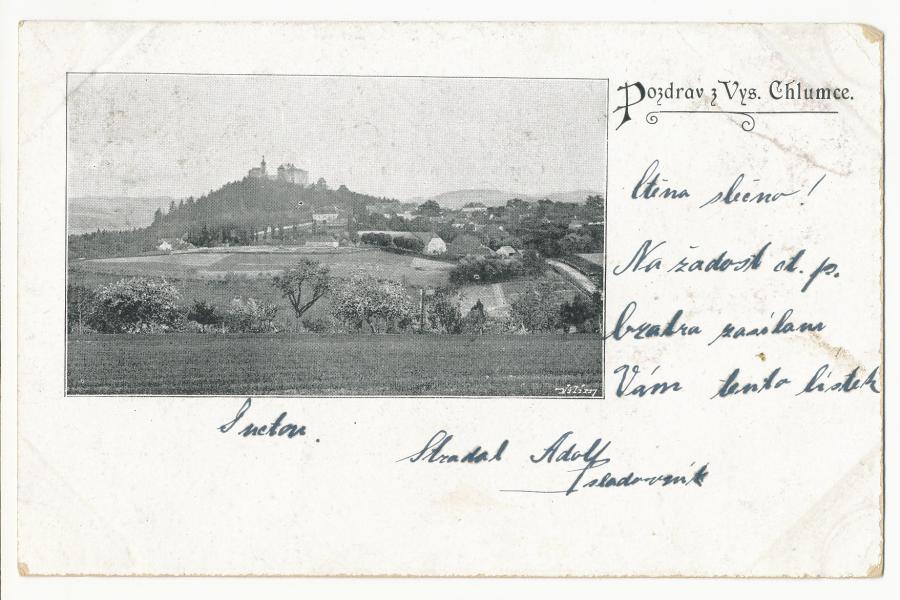 Pozdrav z Vys. Chlumce.
Ctěna slečno!
Na žadost ct. p.
bratra zasílam
Vám tento lístek
S uctou.
Stradal Adolf
sladovník